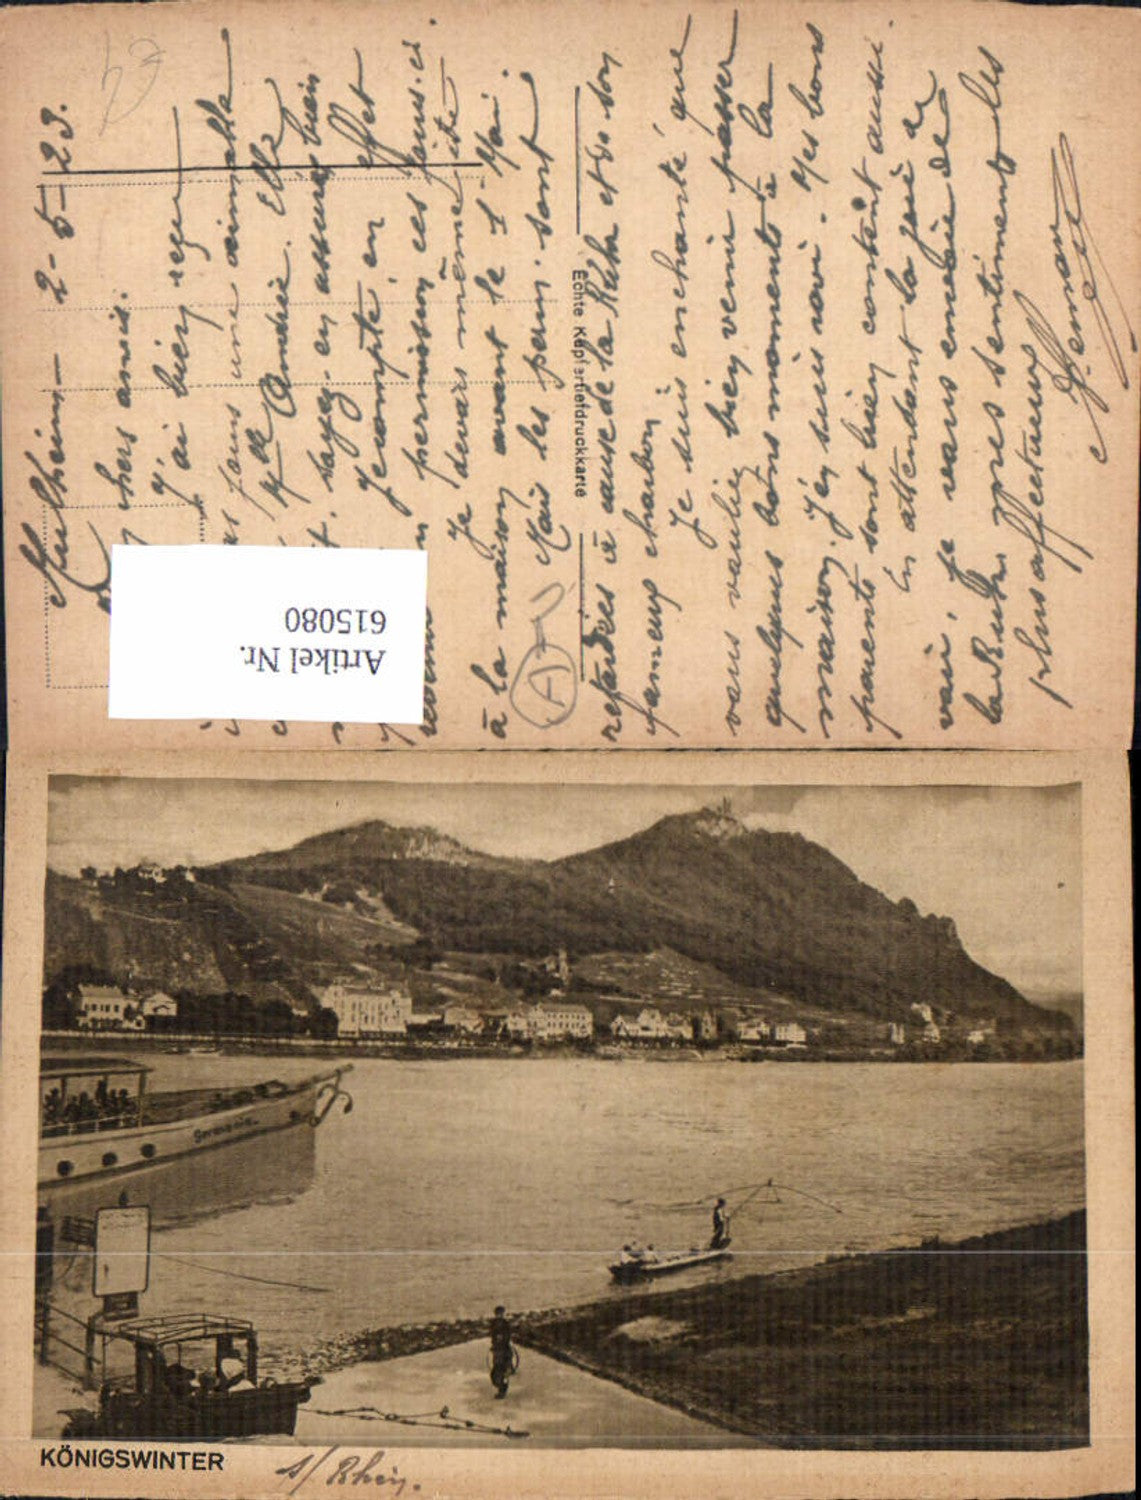 Mulheim — 2-5-23.
chers amis.
J'ai bien reçu
une aimable
Mlle Andrée. Elle
soyez-en assurés bien
Je compte en effet
permission ces jours-ci.
Je devais même être
à la maison avant le 1er Mai.
Mais les perm. sont
retardées à cause de la Ruhr et de son
fameux charbon
Je suis enchanté que
vous vouliez bien venir passer
quelques bons moments à la
maison. J'en suis ravi. Mes bons
parents sont bien content aussi.
En attendant la joie de
vous je vous envoie de
la Ruhr mes sentiments les
plus affectueux
Echte Kupfertiefdruckkarte
Artikel Nr.
615080
63
Germania
KÖNIGSWINTER
s/ Rhein.